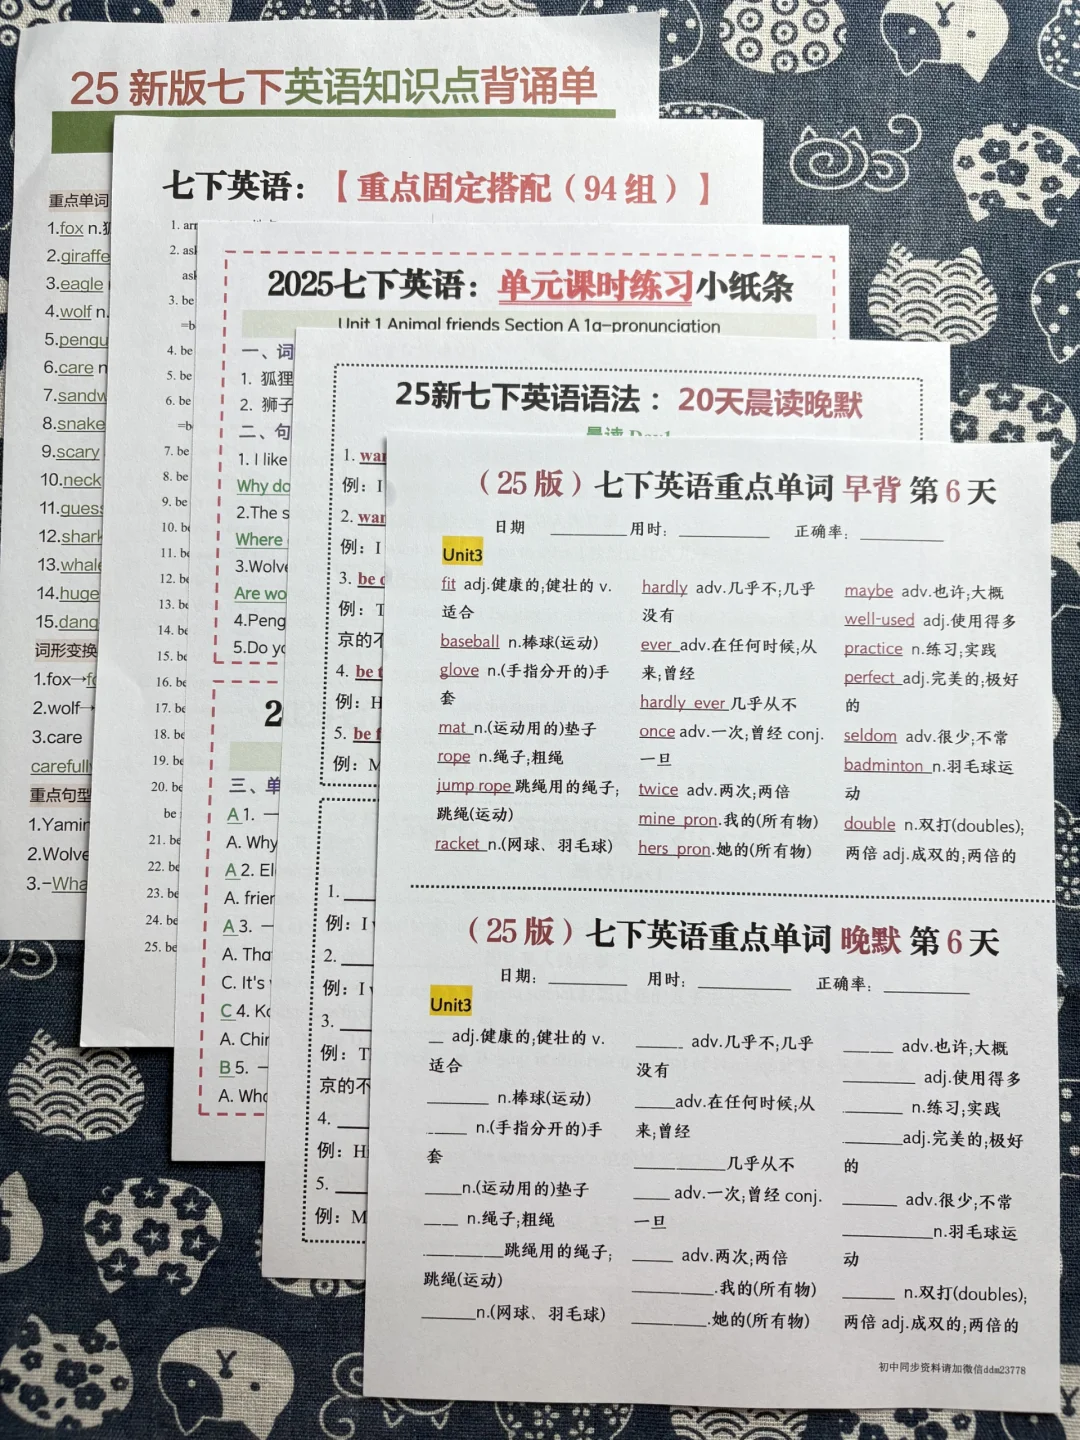 25 新版七下英语知识点背诵单
重点单词
1.fox n.狐
2.giraffe
3.eagle
4.wolf n.
5.pengu
6.care n
7.sandw
8.snake
9.scary
10.neck
11.guess
12.shark
13.whale
14.huge
15.dang
词形变换
1.fox→f
2.wolf→
3.care
carefully
重点句型
1.Yamin
2.Wolve
3.-Wha
七下英语：【重点固定搭配（94 组）】
1. arr
2. ask
ask
3. be
=b
4. be
5. be
6. be
=b
7. be
8. be
9. be
10. be
11. be
12. be
13. be
14. be
15. be
16. be
17. be
18. be
19. be
20. be
be
21. be
22. be
23. be
24. be
25. be
2025七下英语：单元课时练习小纸条
Unit 1 Animal friends Section A 1a-pronunciation
一、词
1. 狐狸
2. 狮子
二、句
1. I like
Why do
2.The s
Where
3.Wolve
Are wo
4.Peng
5.Do yo
2
三、单
A 1. 一
A. Why
A 2. El
A. frien
A 3. 一
A. Tha
C. It's
C 4. Ko
A. Chin
B 5. 一
A. Who
25新七下英语语法：20天晨读晚默
晨读 Day1
1. wan
例：I
2. wan
例：I
3. be c
例：T
京的不
4. be t
例：H
5. be f
例：M
1. ____
例：I v
2. ____
例：I v
3. ____
例：T
京的不
4. ____
例：H
5. ____
例：M
（25 版）七下英语重点单词 早背 第 6 天
日期 ________ 用时：________ 正确率：________
Unit3
fit adj.健康的;健壮的 v.
适合
baseball n.棒球(运动)
glove n.(手指分开的)手
套
mat n.(运动用的)垫子
rope n.绳子;粗绳
jump rope 跳绳用的绳子;
跳绳(运动)
racket n.(网球、羽毛球)
hardly adv.几乎不;几乎
没有
ever adv.在任何时候;从
来;曾经
hardly ever 几乎从不
once adv.一次;曾经 conj.
一旦
twice adv.两次;两倍
mine pron.我的(所有物)
hers pron.她的(所有物)
maybe adv.也许;大概
well-used adj.使用得多
practice n.练习;实践
perfect adj.完美的;极好
的
seldom adv.很少;不常
badminton n.羽毛球运
动
double n.双打(doubles);
两倍 adj.成双的;两倍的
（25 版）七下英语重点单词 晚默 第 6 天
日期：________ 用时：________ 正确率：________
Unit3
__ adj.健康的;健壮的 v.
适合
______ n.棒球(运动)
____ n.(手指分开的)手
套
____n.(运动用的)垫子
____ n.绳子;粗绳
________跳绳用的绳子;
跳绳(运动)
______n.(网球、羽毛球)
_____ adv.几乎不;几乎
没有
____adv.在任何时候;从
来;曾经
_________几乎从不
____ adv.一次;曾经 conj.
一旦
____ adv.两次;两倍
________.我的(所有物)
________.她的(所有物)
_____ adv.也许;大概
_______ adj.使用得多
______ n.练习;实践
______adj.完美的;极好
的
______ adv.很少;不常
_________n.羽毛球运
动
_____ n.双打(doubles);
两倍 adj.成双的;两倍的
初中同步资料请加微信ddm23778